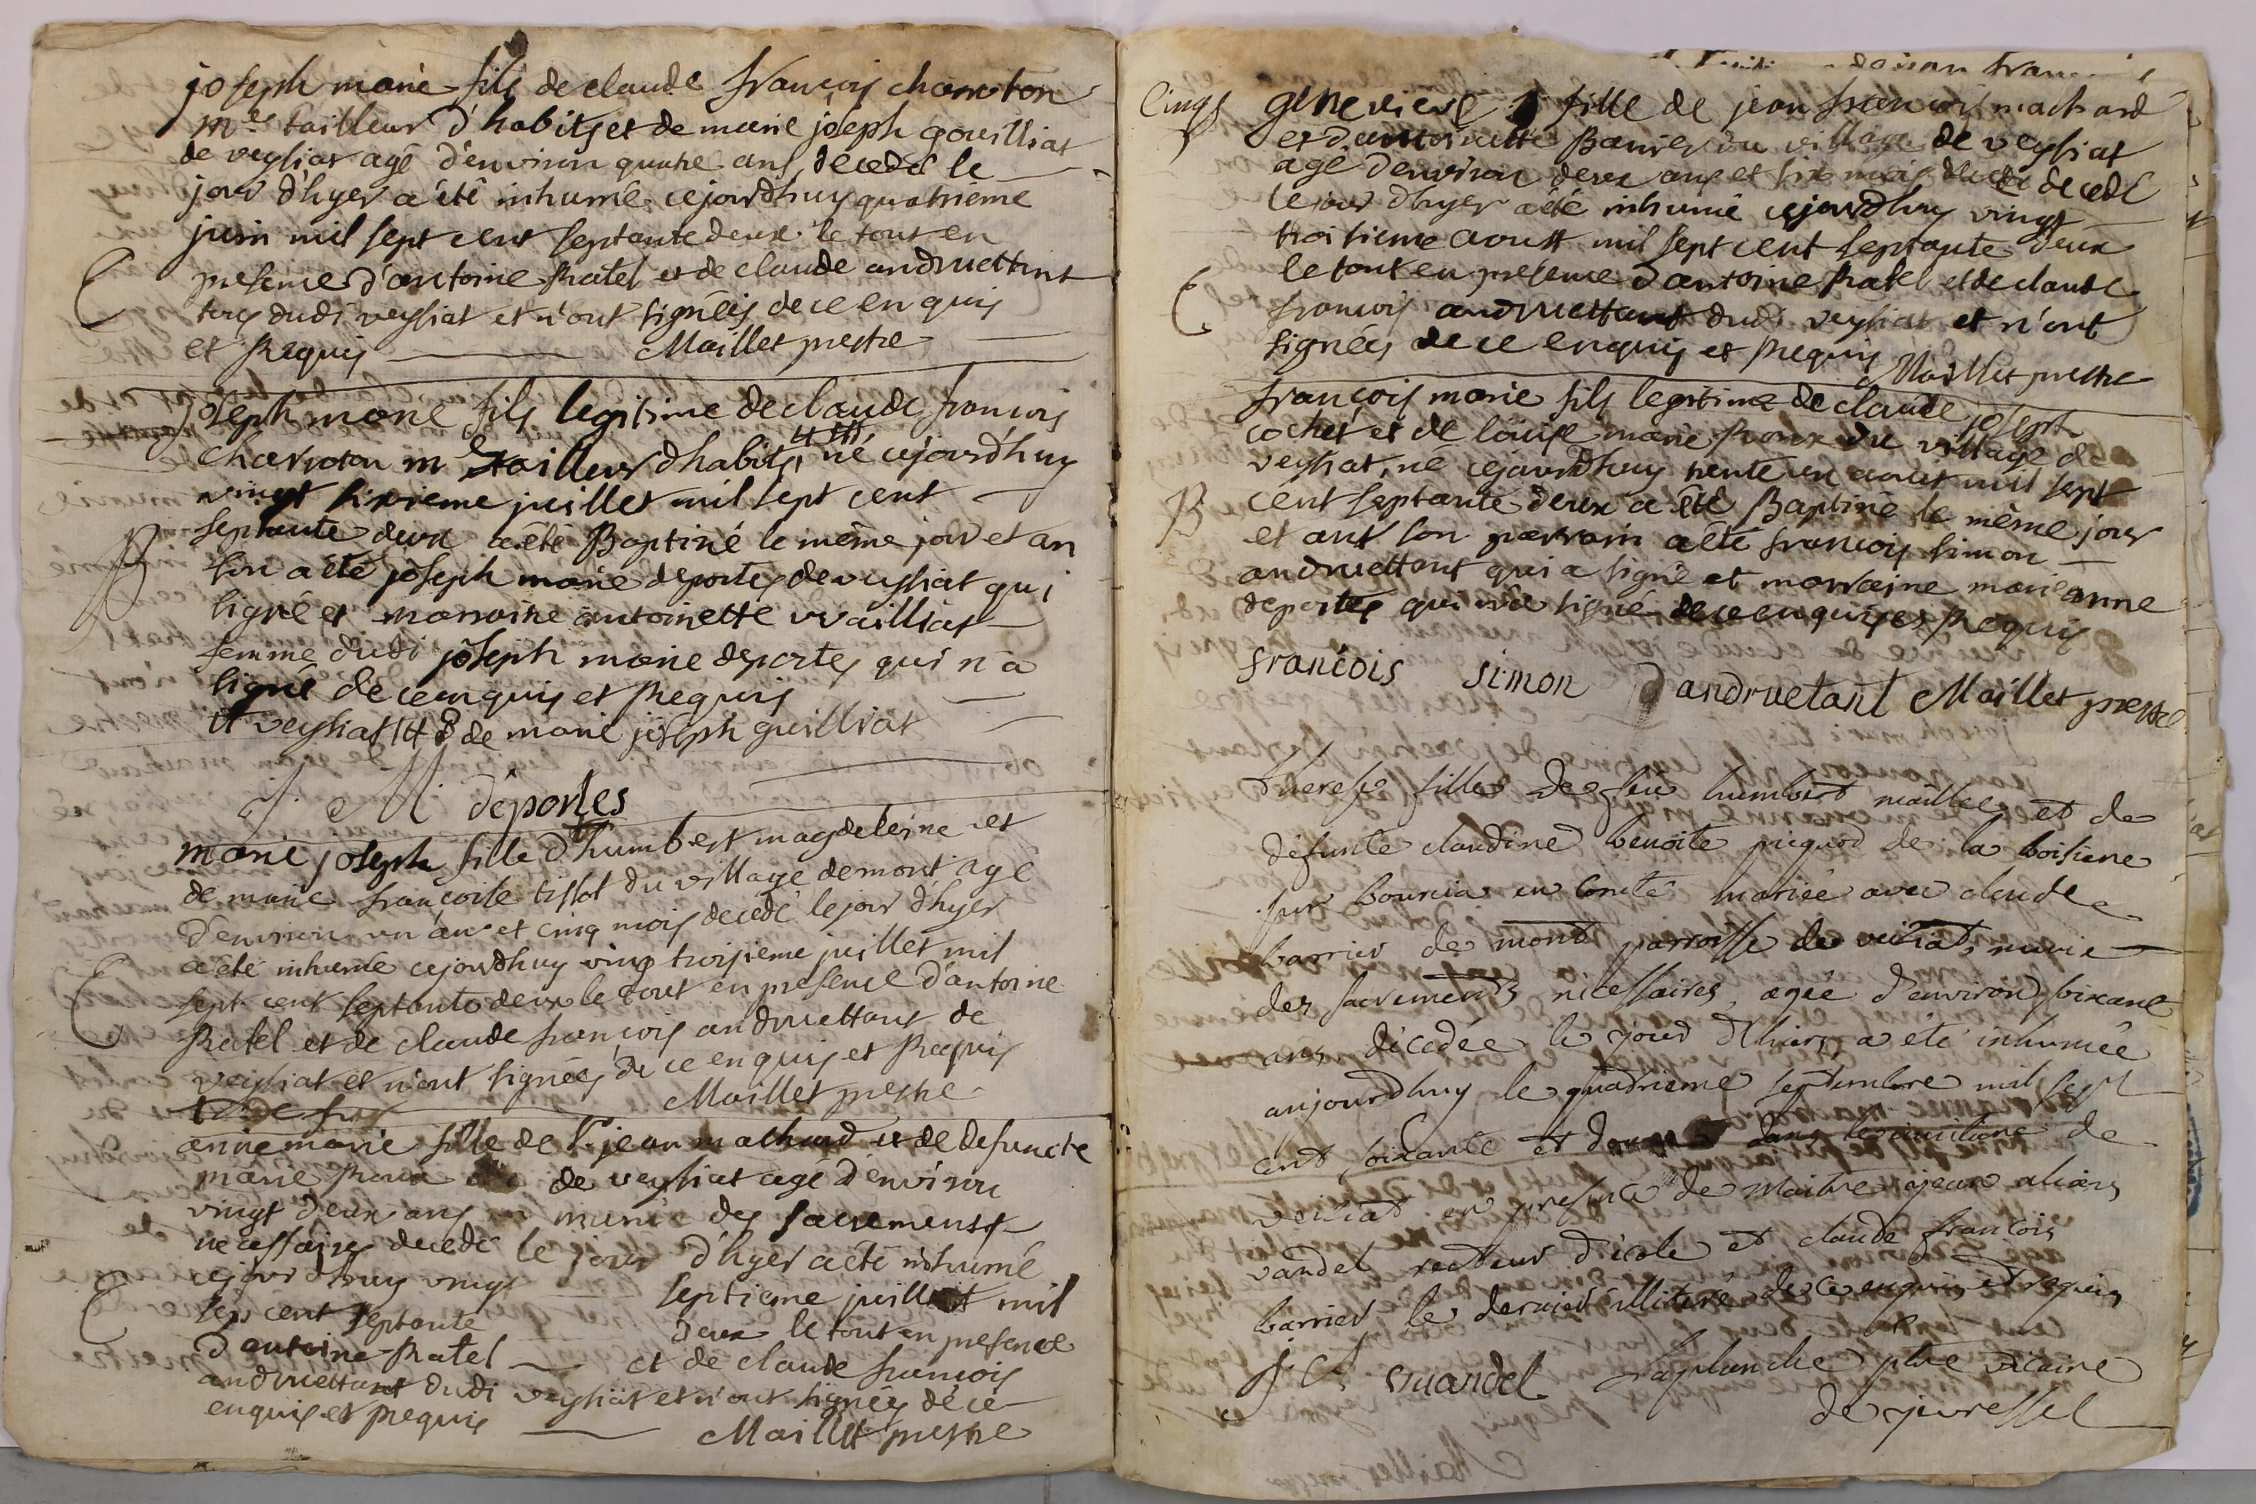 joseph marie fils de claude françois charnoton
Me tailleur d'habits et de marie joseph gouilliat
de veysiat agé d'environ quatre ans decedé le
jour d'hyer a été inhumé cejourdhuy quatrieme
juin mil sept cent septante deux le tout en
presence d'antoine Ratel et de claude andruettant
tous dudi veysiat et n'ont signéés de ce enquis
et Requis Maillet prestre
joseph marie fils legitime de claude francois
charnoton me tailleur d'habits, né cejourd'huy
vingt sixieme juillet mil sept cent
septante deux a été Baptisé le même jour et an
son a été joseph marie deportes de veysiat qui
signé et marraine antoinette vvailliat
femme dudi joseph marie deportes qui n'a
signé de ce enquis et Requis
veysiat de marie joseph guilliat
J. M. deportes
marie joseph fille d'humbert magdeleine et
de marie françoise tissot du village de mont agé
d'environ un an et cinq mois decedé le jour d'hyer
a été inhumé cejourdhuy ving troisieme juillet mil
sept cent septante deux le tout en presence d'antoine
Ratel et de claude françois andruettant de
veysiat et n'ont signéés de ce enquis et Requis
Maillet prestre
anne marie fille de jean machard et de defuncte
marie Raux de veysiat agé d'environ
vingt deux ans munie des sacrements
necessaires decedé le jour d'hyer a été inhumé
cejourdhuy vingt septieme juillet mil
sept cent septante deux le tout en presence
d'antoine Ratel et de claude francois
andruettant dudi veysiat et n'ont signéés de ce
enquis et Requis Maillet prestre
genevieve fille de jean francois machard
et d'antoinette Banier du village de veysiat
agé d'environ deux ans et six mois decedé
le jour d'hyer a été inhumé cejourdhuy vingt
troisieme aoust mil sept cent septante deux
le tout en presence d'antoine Ratel et de claude
francois andruettant dudi veysiat et n'ont
signéés de ce enquis et Requis
Maillet prestre
françois marie fils legitime de claude joseph
cochet et de louise marie Roux du village de
veysiat, né cejourdhuy trente un aout mil sept
cent septante deux a été Baptisé le même jour
et ant son parrain a été francois simon
andruettant qui a signé et marraine marie anne
deportes qui n'a signé de ce enquis et Requis
francois simon dandruetant Maillet prestre
Therese fille de feu humbert maillet et de
defunte claudine benoite piquod de la boissiere
sur Bourcia en Comté mariée avec claude
barrier de mont parroisse de veisiat, munie
des sacrements necessaires, agée d'environ soixante
ans, décédée le jour d'hier, a été inhumée
aujourdhuy le quatrieme septembre mil sept
cent soixante et douze dans le cimitiere de
veisiat en presence de Maitre jean
vandel recteur d'école et claude francois
barrier le dernier illitéré de ce enquis et requis
vuandel Laplanche ptre vicaire